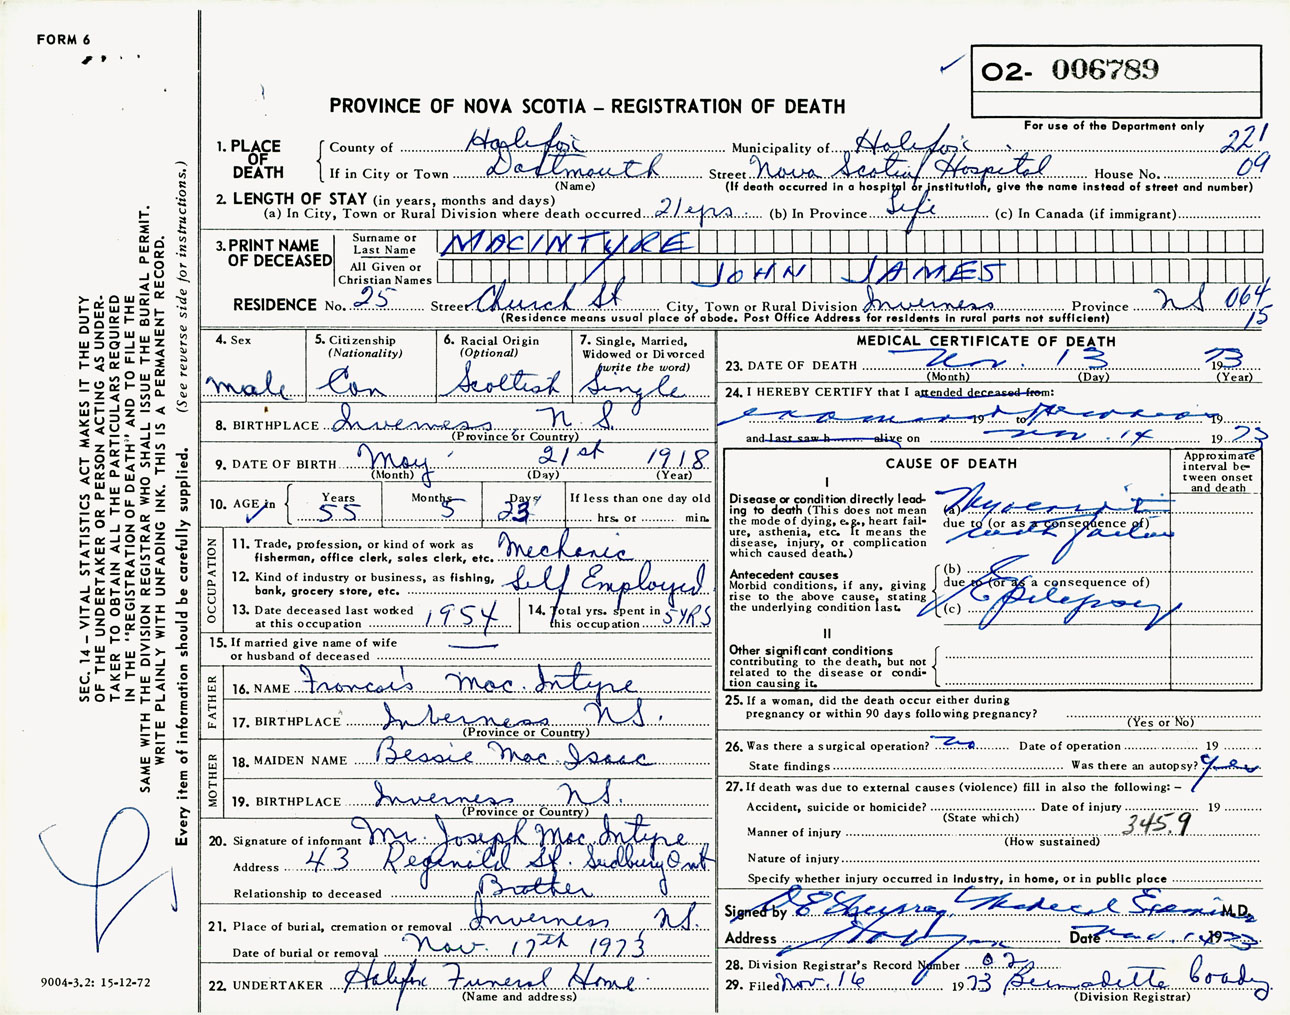 FORM 6
O2- 006789
PROVINCE OF NOVA SCOTIA – REGISTRATION OF DEATH
For use of the Department only
1. PLACE OF DEATH
County of Halifax Municipality of Halifax 221
If in City or Town Dartmouth Street Nova Scotia Hospital House No. 09
(Name) (If death occurred in a hospital or institution, give the name instead of street and number)
2. LENGTH OF STAY (in years, months and days)
(a) In City, Town or Rural Division where death occurred 21 yrs (b) In Province Life (c) In Canada (if immigrant)
3. PRINT NAME OF DECEASED
Surname or Last Name MACINTYRE
All Given or Christian Names JOHN JAMES
RESIDENCE No. 25 Street Church St City, Town or Rural Division Inverness Province NS 064
(Residence means usual place of abode. Post Office Address for residents in rural parts not sufficient) 15
4. Sex
male
5. Citizenship (Nationality)
Can
6. Racial Origin (Optional)
Scottish
7. Single, Married, Widowed or Divorced (write the word)
Single
8. BIRTHPLACE Inverness N.S.
(Province or Country)
9. DATE OF BIRTH May 21st 1918
(Month) (Day) (Year)
10. AGE in Years 55 Months 5 Days 23 If less than one day old
hrs. or min.
OCCUPATION
11. Trade, profession, or kind of work as fisherman, office clerk, sales clerk, etc. Mechanic
12. Kind of industry or business, as fishing, bank, grocery store, etc. Self Employed
13. Date deceased last worked at this occupation 1954
14. Total yrs. spent in this occupation 5 YRS
15. If married give name of wife or husband of deceased —
FATHER
16. NAME Francois MacIntyre
17. BIRTHPLACE Inverness NS.
(Province or Country)
MOTHER
18. MAIDEN NAME Bessie MacIsaac
19. BIRTHPLACE Inverness NS.
(Province or Country)
20. Signature of informant Mr. Joseph MacIntyre
Address 43 Reginald St. Sudbury Ont
Relationship to deceased Brother
21. Place of burial, cremation or removal Inverness NS.
Date of burial or removal Nov. 17th 1973
22. UNDERTAKER Halifax Funeral Home
(Name and address)
MEDICAL CERTIFICATE OF DEATH
23. DATE OF DEATH Nov. 13 1973
(Month) (Day) (Year)
24. I HEREBY CERTIFY that I attended deceased from:
19 to 19
and last saw h alive on Nov. 14 1973
CAUSE OF DEATH
Approximate interval between onset and death
I
Disease or condition directly leading to death (This does not mean the mode of dying, e.g., heart failure, asthenia, etc. It means the disease, injury, or complication which caused death.)
(a)
due to (or as a consequence of)
with failure
Antecedent causes
Morbid conditions, if any, giving rise to the above cause, stating the underlying condition last.
(b)
due to (or as a consequence of)
(c) Epilepsy
II
Other significant conditions
contributing to the death, but not related to the disease or condition causing it.
25. If a woman, did the death occur either during pregnancy or within 90 days following pregnancy?
(Yes or No)
26. Was there a surgical operation? no Date of operation 19
State findings Was there an autopsy? Yes
27. If death was due to external causes (violence) fill in also the following: –
Accident, suicide or homicide? Date of injury 19
(State which) 345.9
Manner of injury
(How sustained)
Nature of injury
Specify whether injury occurred in industry, in home, or in public place
Signed by Medical Examiner M.D.
Address Date Nov. 14 1973
28. Division Registrar's Record Number 02
29. Filed Nov. 16 1973 Bernadette Coady
(Division Registrar)
SEC. 14 – VITAL STATISTICS ACT MAKES IT THE DUTY
OF THE UNDERTAKER OR PERSON ACTING AS UNDER-
TAKER TO OBTAIN ALL THE PARTICULARS REQUIRED
IN THE "REGISTRATION OF DEATH" AND TO FILE THE
SAME WITH THE DIVISION REGISTRAR WHO SHALL ISSUE THE BURIAL PERMIT.
WRITE PLAINLY WITH UNFADING INK. THIS IS A PERMANENT RECORD.
Every item of information should be carefully supplied. (See reverse side for instructions.)
9004-3.2: 15-12-72